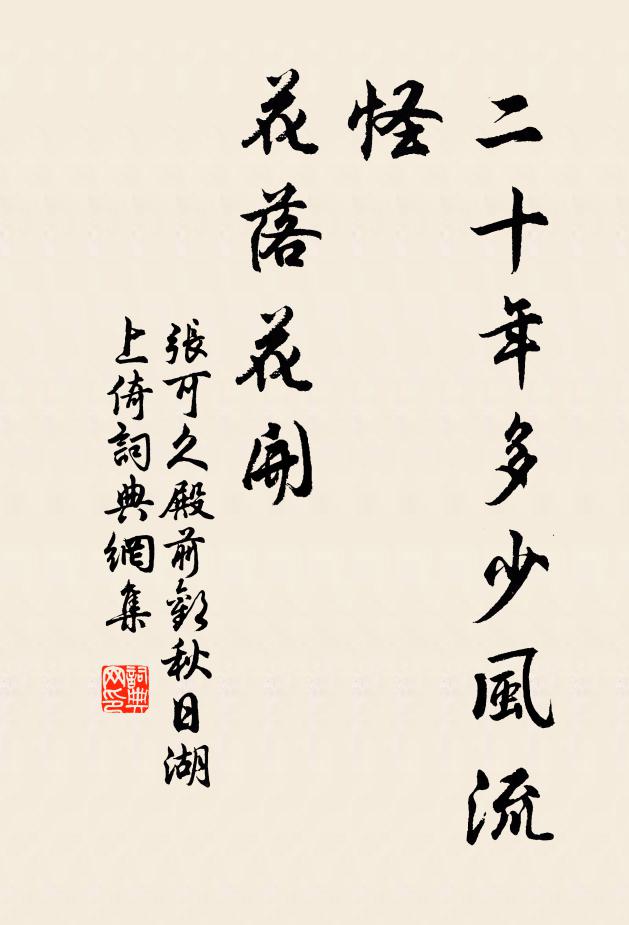 二十年多少風流
怪
花落花開
張可久殿前歡秋日湖
上倚詞典網集
詞典網印